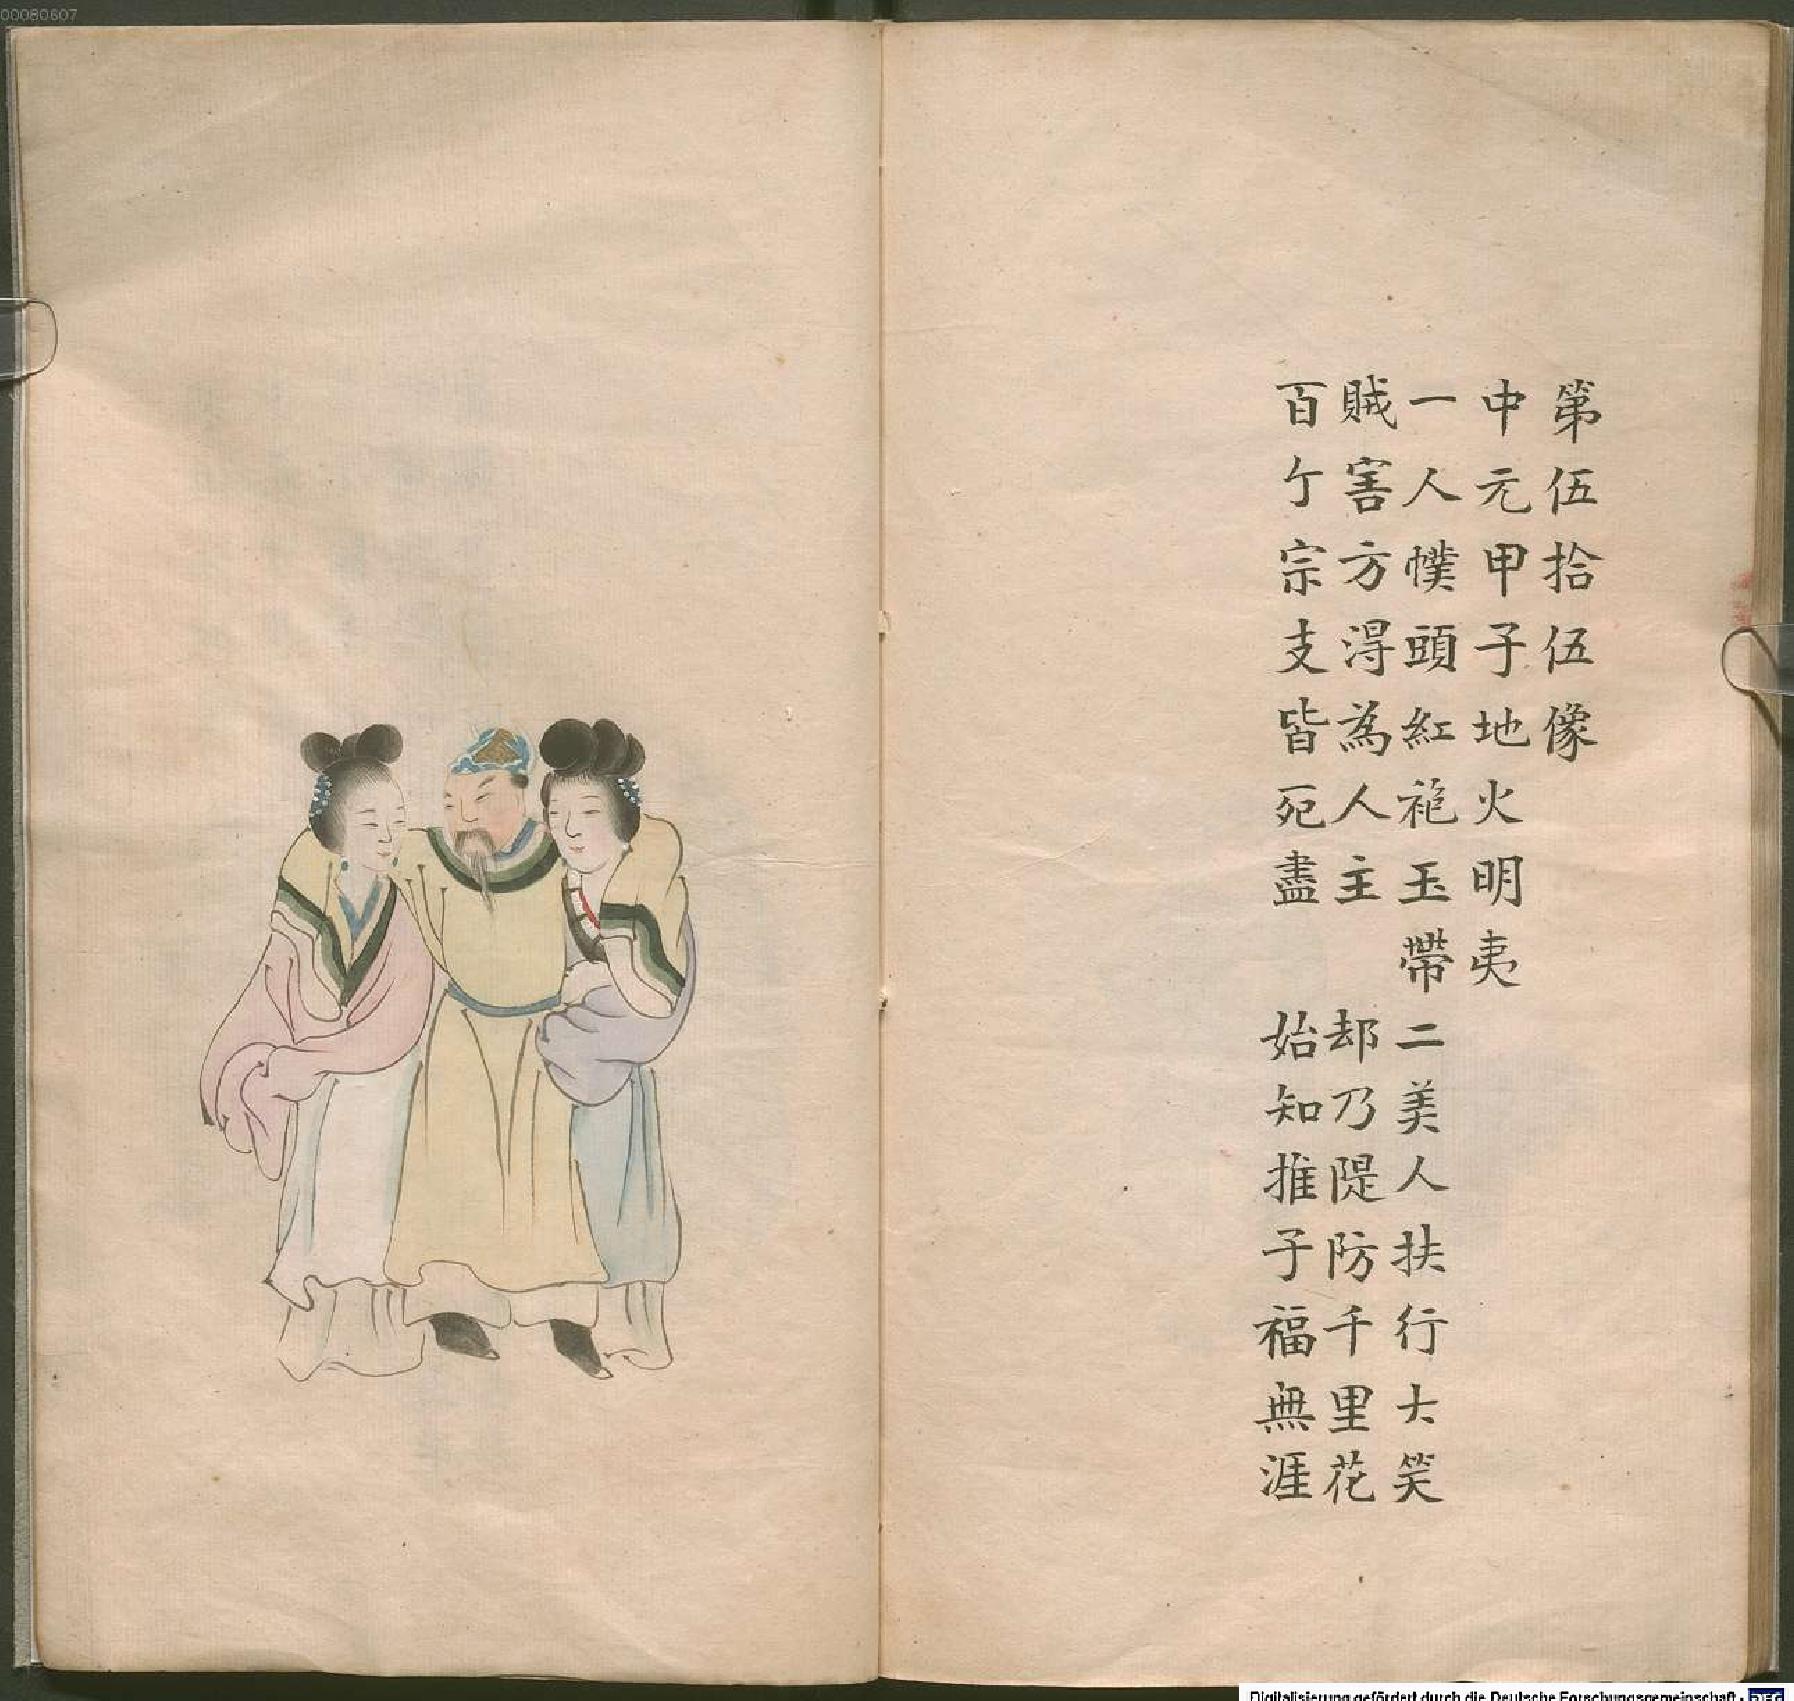 00080607
第伍拾伍像
中元甲子地火明夷
一人幞頭紅袍玉帶二美人扶行大笑
賊害方淂為人主 却乃隄防千里花
百亇宗支皆死盡 始知推子福無涯
Digitalisierung gefördert durch die Deutsche Forschungsgemeinschaft -